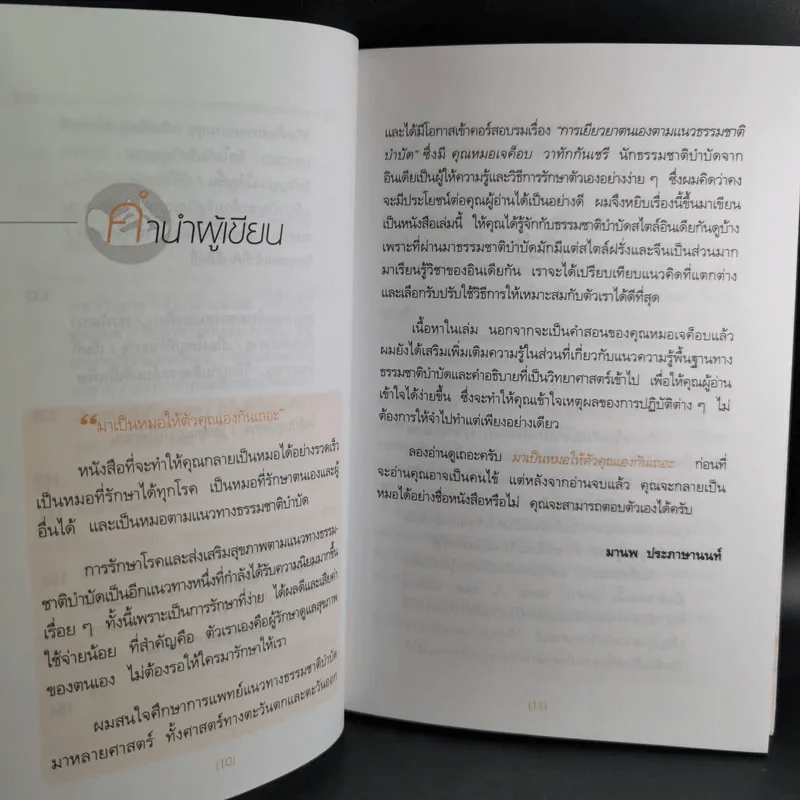 คำนำผู้เขียน
“มาเป็นหมอให้ตัวคุณเองกันเถอะ”
หนังสือที่จะทำให้คุณกลายเป็นหมอได้อย่างรวดเร็ว
เป็นหมอที่รักษาได้ทุกโรค เป็นหมอที่รักษาตนเองและผู้
อื่นได้ และเป็นหมอตามแนวทางธรรมชาติบำบัด
การรักษาโรคและส่งเสริมสุขภาพตามแนวทางธรรม-
ชาติบำบัดเป็นอีกแนวทางหนึ่งที่กำลังได้รับความนิยมมากขึ้น
เรื่อย ๆ ทั้งนี้เพราะเป็นการรักษาที่ง่าย ได้ผลดีและเสียค่า
ใช้จ่ายน้อย ที่สำคัญคือ ตัวเราเองคือผู้รักษาดูแลสุขภาพ
ของตนเอง ไม่ต้องรอให้ใครมารักษาให้เรา
ผมสนใจศึกษาการแพทย์แนวทางธรรมชาติบำบัด
มาหลายศาสตร์ ทั้งศาสตร์ทางตะวันตกและตะวันออก
(10)
และได้มีโอกาสเข้าคอร์สอบรมเรื่อง “การเยียวยาตนเองตามแนวธรรมชาติ
บำบัด” ซึ่งมี คุณหมอเจค็อบ วาทักกันเชรี นักธรรมชาติบำบัดจาก
อินเดียเป็นผู้ให้ความรู้และวิธีการรักษาตัวเองอย่างง่าย ๆ ซึ่งผมคิดว่าคง
จะมีประโยชน์ต่อคุณผู้อ่านได้เป็นอย่างดี ผมจึงหยิบเรื่องนี้ขึ้นมาเขียน
เป็นหนังสือเล่มนี้ ให้คุณได้รู้จักกับธรรมชาติบำบัดสไตล์อินเดียกันดูบ้าง
เพราะที่ผ่านมาธรรมชาติบำบัดมักมีแต่สไตล์ฝรั่งและจีนเป็นส่วนมาก
มาเรียนรู้วิชาของอินเดียกัน เราจะได้เปรียบเทียบแนวคิดที่แตกต่าง
และเลือกรับปรับใช้วิธีการให้เหมาะสมกับตัวเราได้ดีที่สุด
เนื้อหาในเล่ม นอกจากจะเป็นคำสอนของคุณหมอเจค็อบแล้ว
ผมยังได้เสริมเพิ่มเติมความรู้ในส่วนที่เกี่ยวกับแนวความรู้พื้นฐานทาง
ธรรมชาติบำบัดและคำอธิบายที่เป็นวิทยาศาสตร์เข้าไป เพื่อให้คุณผู้อ่าน
เข้าใจได้ง่ายขึ้น ซึ่งจะทำให้คุณเข้าใจเหตุผลของการปฏิบัติต่าง ๆ ไม่
ต้องการให้จำไปทำแต่เพียงอย่างเดียว
ลองอ่านดูเถอะครับ มาเป็นหมอให้ตัวคุณเองกันเถอะ ก่อนที่
จะอ่านคุณอาจเป็นคนไข้ แต่หลังจากอ่านจบแล้ว คุณจะกลายเป็น
หมอได้อย่างชื่อหนังสือหรือไม่ คุณจะสามารถตอบตัวเองได้ครับ
มานพ ประภาษานนท์
(11)